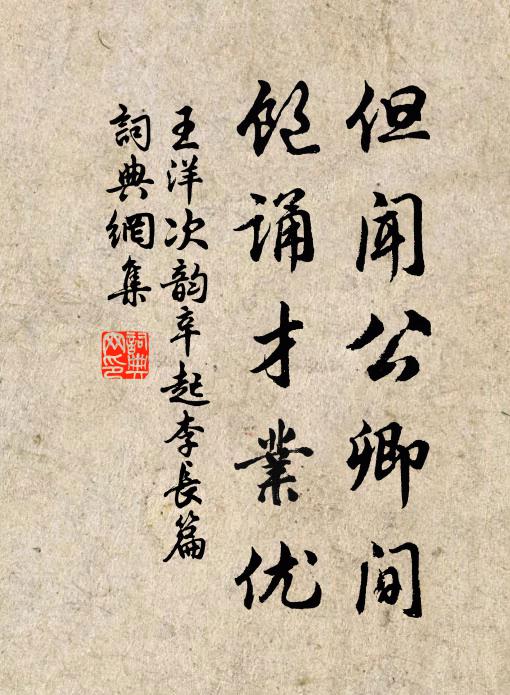 但闻公卿间
饱诵才業优
王洋次韵辛起李長篇
詞典網集
詞典网印